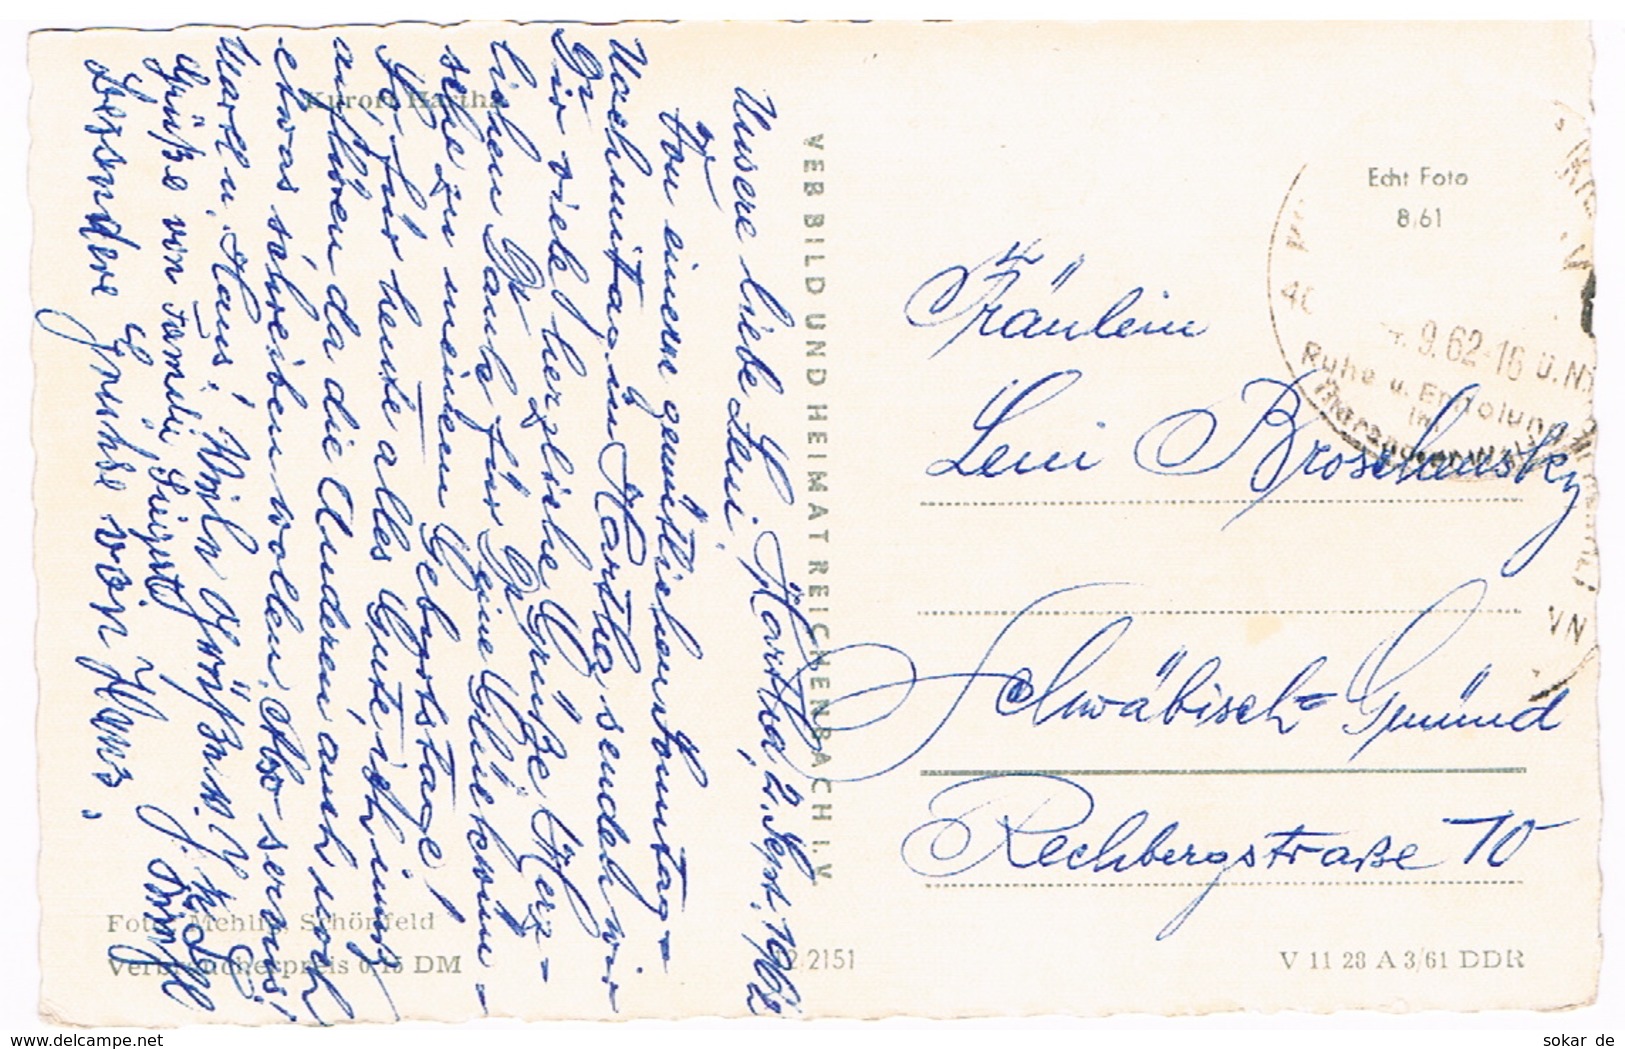 Kurort Hartha
Hartha, 2. Sept. 1962
Unsere liebe Leni!
Von einem gemütlichen Sonntag-
Nachmittag in Hartha senden wir
Dir viele herzliche Grüße! Herz-
lichen Dank für Deine Glückwün-
sche zu meinem Geburtstage!
für heute alles Gute, ich muß
aufhören da die Anderen auch noch
etwas schreiben wollen. Also servus!
Hans! Viele
Grüße von Familie
Besondere Grüße von Hans.
Foto: Mehlig, Schönfeld
Verbraucherpreis 0,15 DM
VEB BILD UND HEIMAT REICHENBACH I. V.
2151
Echt Foto
8/61
9.62-16
Ruhe u. Erholung
im
Fräulein
Leni Broschansky
Schwäbisch-Gmünd
Rechbergstraße 10
V 11 28 A 3/61 DDR
sokar de
delcampe.net